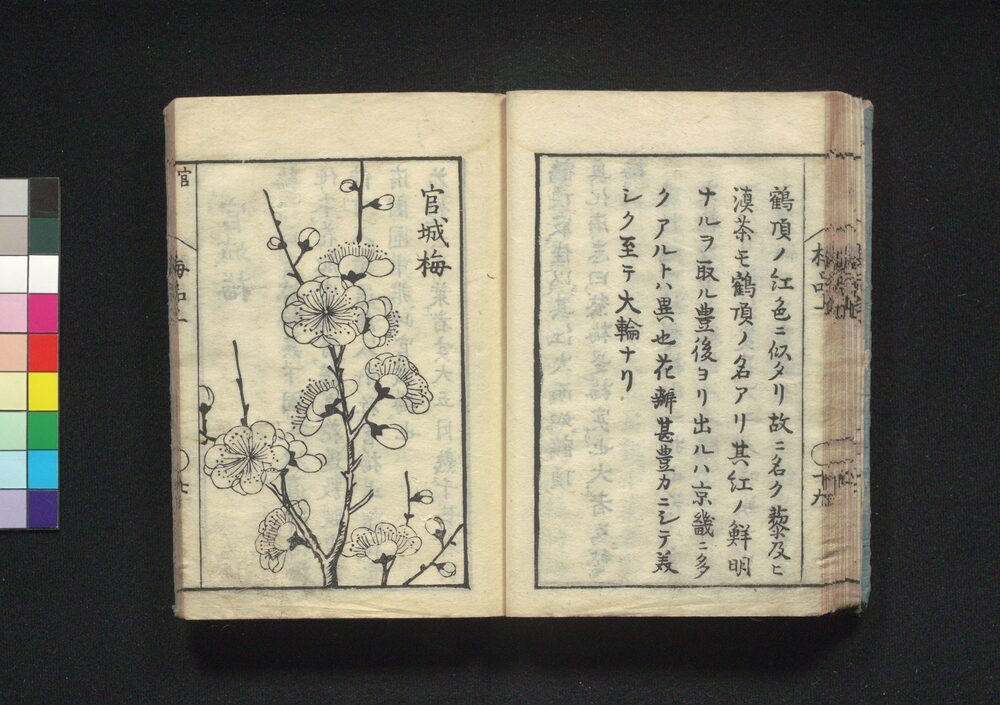 鶴頂ノ紅色ニ似タリ故ニ名ク藜及ヒ
漠茶モ鶴頂ノ名アリ其紅ノ鮮明
ナルヲ取ル豊後ヨリ出ルハ京畿ニ多
クアルトハ異也花瓣甚豊カニシテ美
シク至テ大輪ナリ
十九
官城梅
官